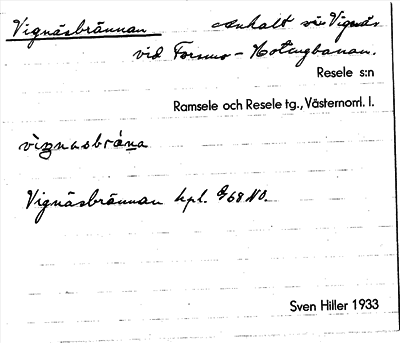 Vignäsbrännan anhalt vid Vignäs
vid Forsmo-Hotingbanan.
Resele s:n
Ramsele och Resele tg., Västernorrl. l.
vignasbràna
Vignäsbrännan hpl. G/68 NO.
Sven Hiller 1933